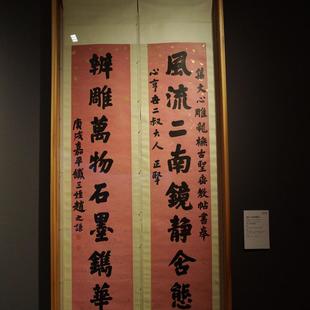 集文心雕龍橅古聖教帖書奉
風流二南鏡靜含態
心亨二叔大人 正擘
辨雕萬物石墨鐫華
嘉平鐵三姪趙之謙